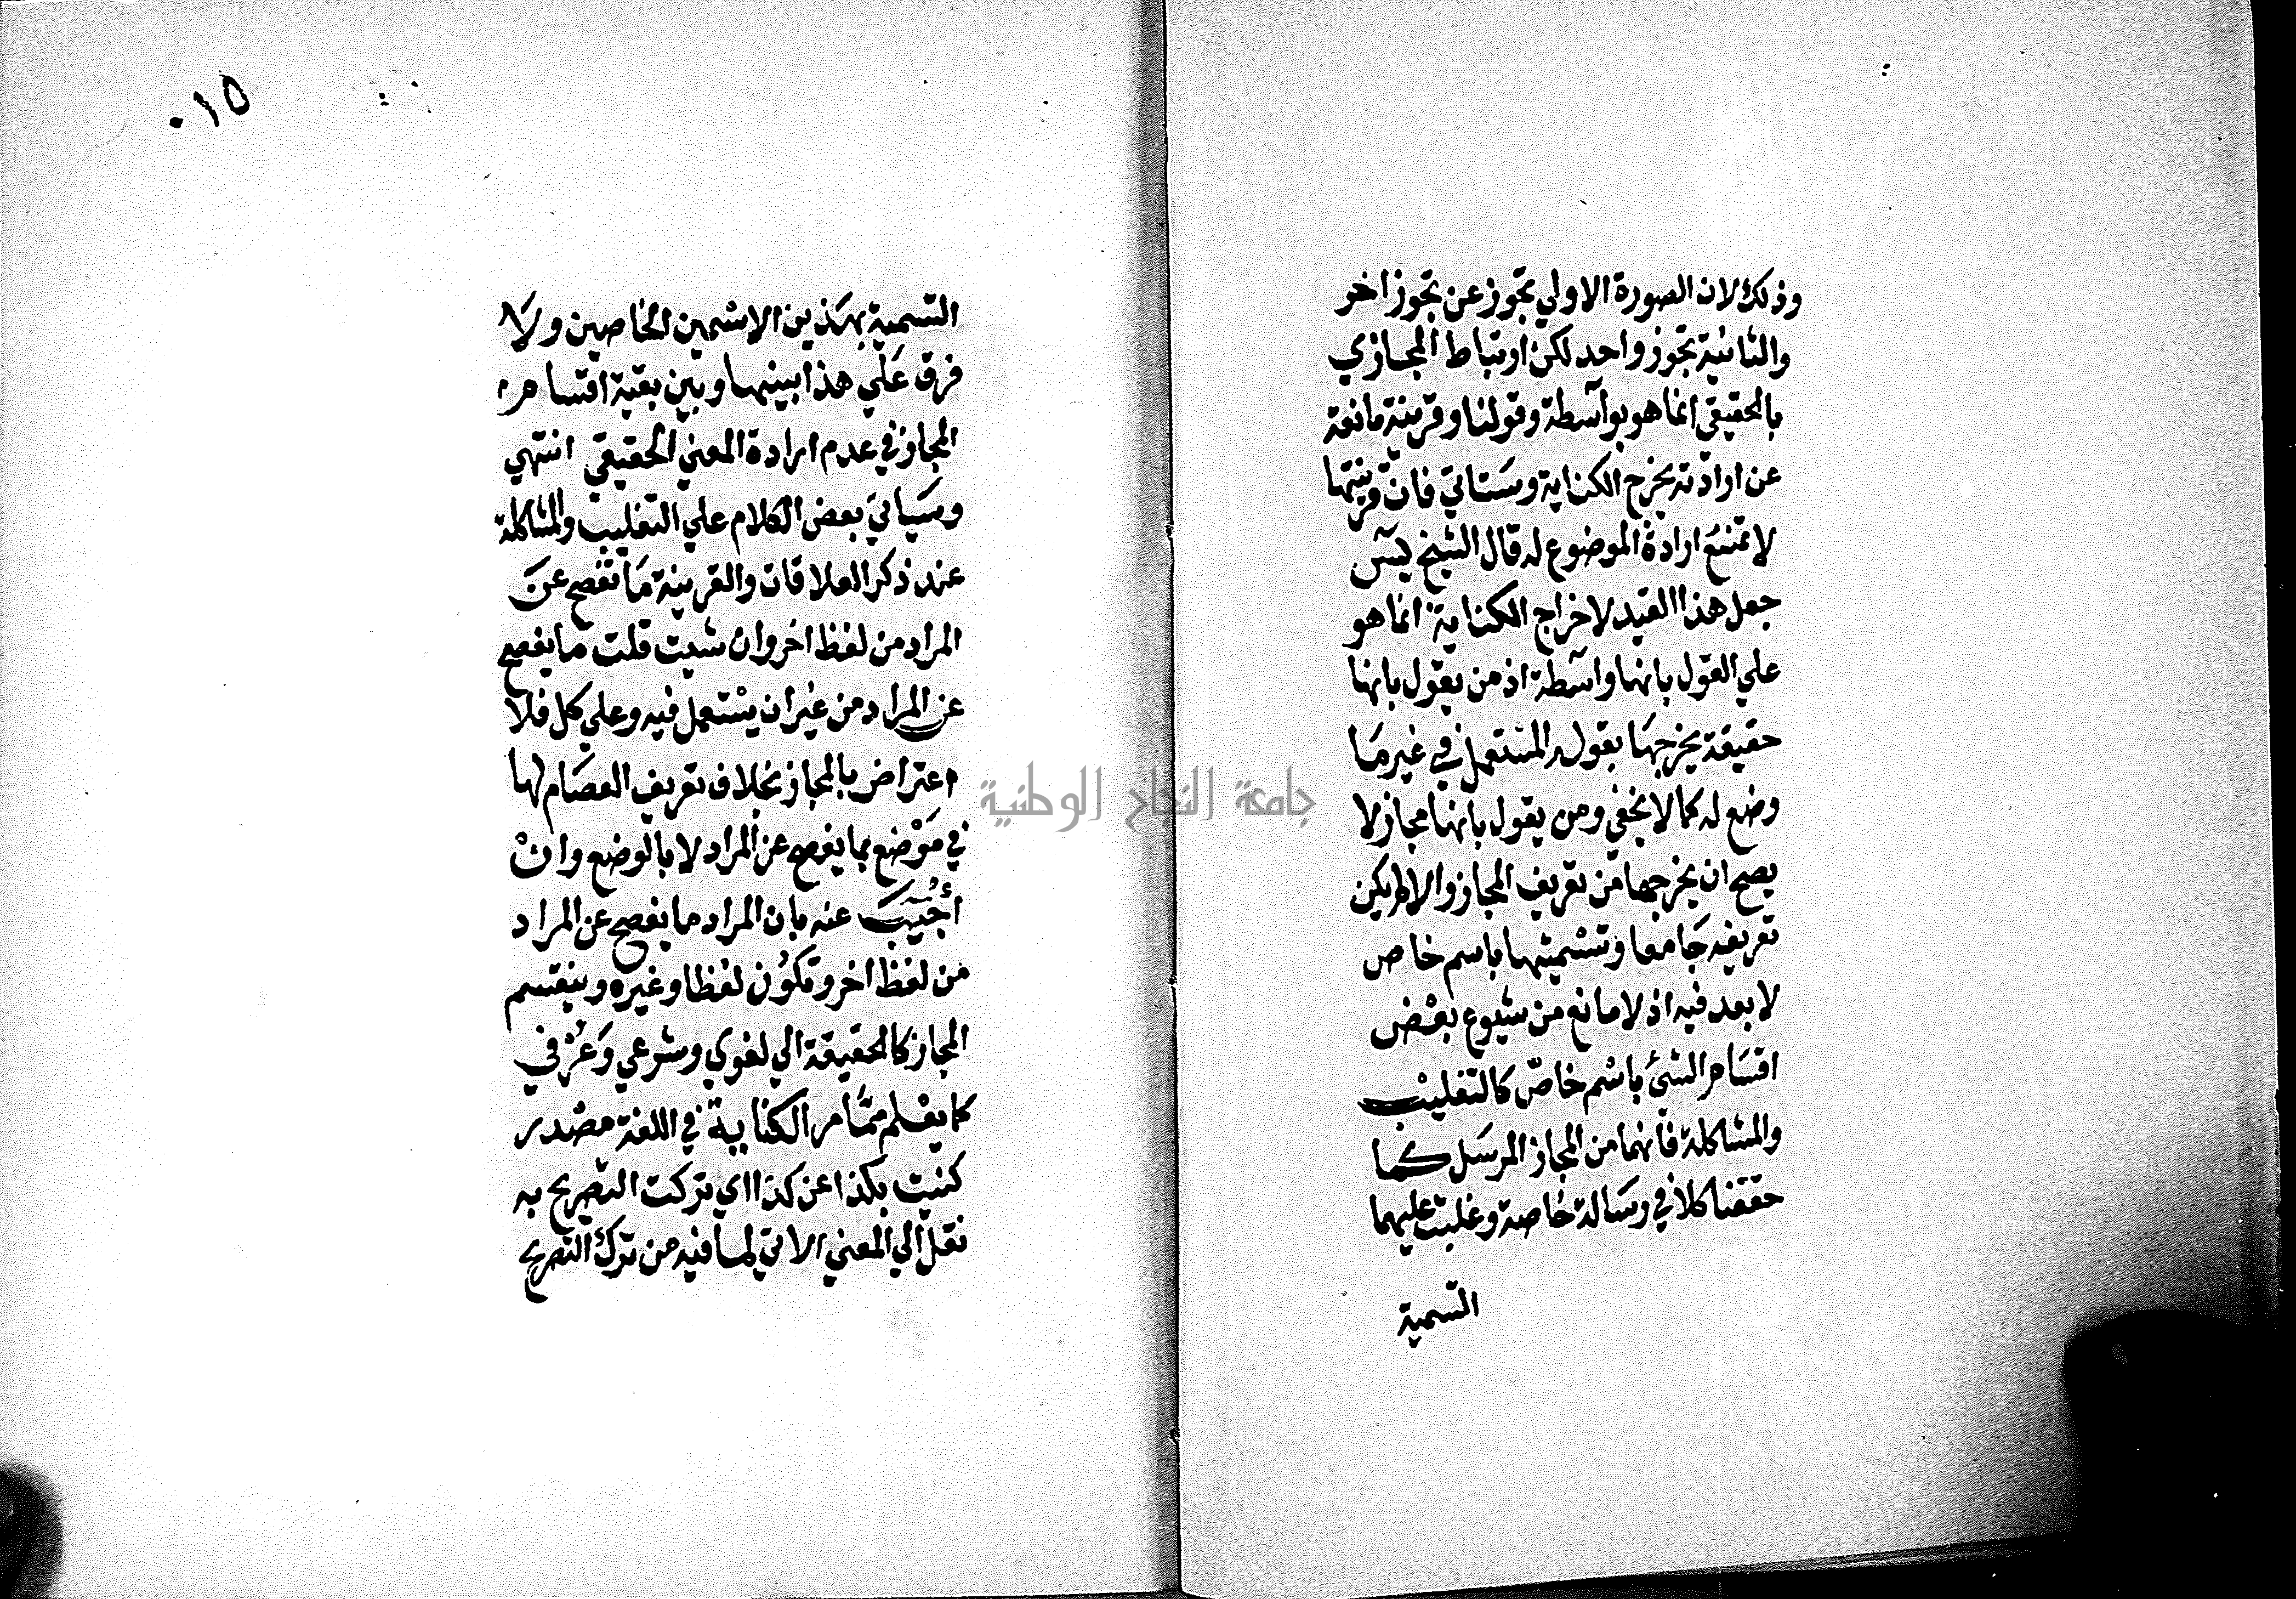 وذلك لان الصورة الاولي تجوز عن تجوز اخر
والثانية تجوز واحد لكن ارتباط المجازي
بالحقيقي انما هو بواسطة وقولنا وقرينة مانعة
عن ارادته يخرج الكناية وستاتي فان قرينتها
لا تمنع ارادة الموضوع له قال الشيخ يس
جعل هذا القيد لاخراج الكناية انما هو
علي القول بانها واسطة اذ من يقول بانها
حقيقة يخرجها بقوله المستعمل في غير ما
وضع له كما لا يخفي ومن يقول بانها مجاز لا
يصح ان يخرجها من تعريف المجاز والا لم يكن
تعريفه جامعا وتسميتها باسم خاص
لا بعد فيه اذ لا مانع من شيوع بعض
اقسام الشئ باسم خاص كالتغليب
والمشاكلة فانهما من المجاز المرسل كما
حققنا كلا في رسالة خاصة وغلبت عليهما
التسمية
٠١٥
التسمية بهذين الاسمين الخاصين ولا
فرق علي هذا بينها وبين بقية اقسام
المجاز في عدم ارادة المعني الحقيقي انتهي
وسياتي بعض الكلام علي التغليب والمشاكلة
عند ذكر العلاقات والقرينة ما تفصح عن
المراد من لفظ اخر وان شيت قلت ما يفصح
عن المراد من غير ان يستعمل فيه وعلي كل فلا
اعتراض بالمجاز بخلاف تعريف العصام لها
في موضع بما يفصح عن المراد لا بالوضع وان
أجيب عنه بان المراد ما يفصح عن المراد
من لفظ اخر وتكون لفظا وغيره وينقسم
المجاز كالحقيقة الي لغوي وشرعي وعرفي
كما يعلم مما مر الكناية في اللغة مصدر
كنيت بكذا عن كذا اي تركت التصريح به
نقل الي المعني الاتي لما فيه من ترك التصريح
جامعة النجاح الوطنية